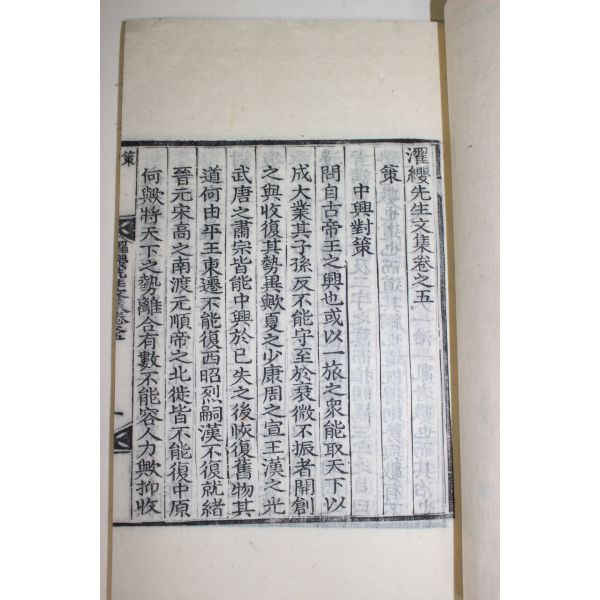 濯纓先生文集卷之五
策
中興對策
問自古帝王之興也或以一旅之衆能取天下以
成大業其子孫反不能守至於衰微不振者開創
之與收復其勢異歟夏之少康周之宣王漢之光
武唐之肅宗皆能中興於已失之後恢復舊物其
道何由平王東遷不能復西昭烈嗣漢不復就緖
晉元宋高之南渡元順帝之北徙皆不能復中原
何歟將天下之勢離合有數不能容人力歟抑收
策
濯纓先生文集卷之五
一